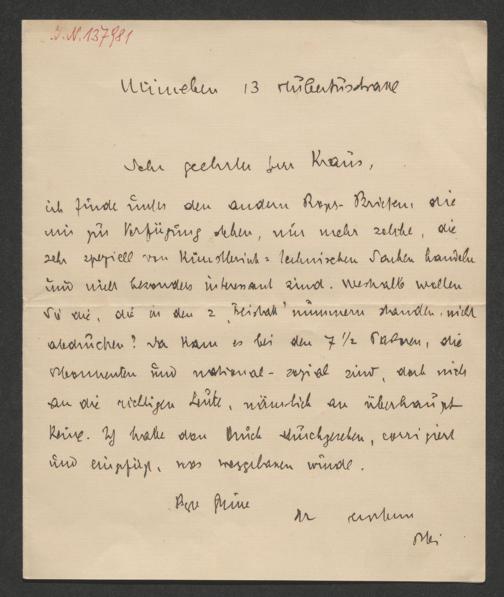 I.N. 137981
München 13 Hubertusstrasse
Sehr geehrter Herr Kraus,
ich finde unter den andern Rops-Briefen, die
mir zur Verfügung stehen, nur mehr solche, die
sehr speziell von Künstlerisch-technischen Sachen handeln
und nicht besonders interessant sind. Weshalb wollen
Sie die, die in den 2 nummern standen, nicht
abdrucken? Da kam es bei den 7 1/2 die
Abonnenten und national-sozial sind, doch nicht
an die richtigen Leute, nämlich an überhaupt
keine. Ich habe den Druck durchgesehen, corrigiert
und eingefügt, was weggelassen wurde.
Ihr